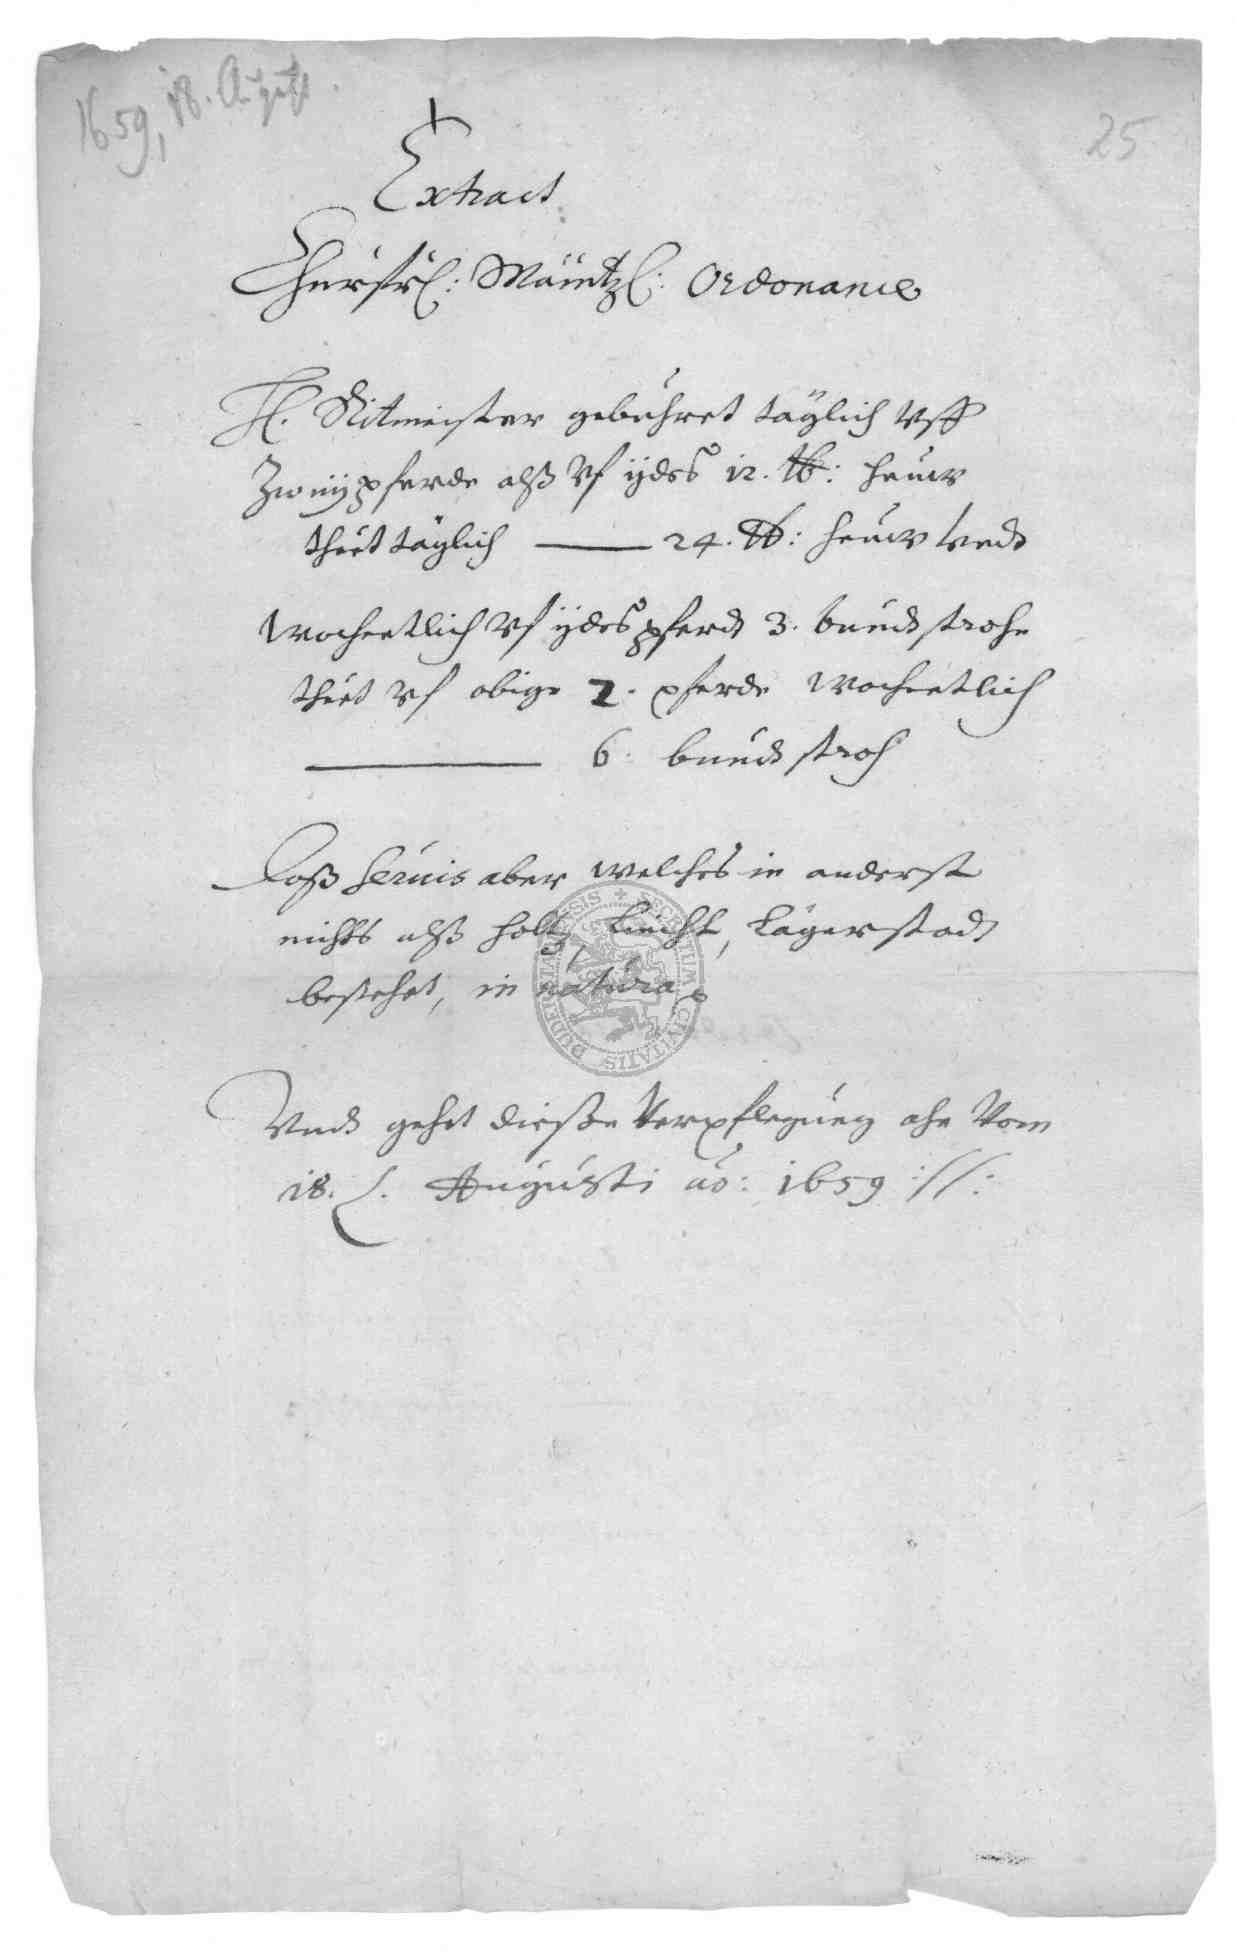 1659, 18. August.
25
Extract
Churfrl: Mäintzl: Ordonance
H. Ritmeister gebuhret täglich vff
Zweÿ pferde alß vf ÿdes 12. ℔: heuw
thuet täglich — 24. ℔: heuw vnd
wochentlich vf ÿdes pferdt 3. bundt strohe
thuet vf obige 2. pferde wochentlich
— 6. bundt stroh
Daß seruis aber welches in anderst
nichts alß holtz, Liecht, Lägerstadt
bestehet, in natura
Vndt gehet dieße Verpflegung ahn Vom
18. Augusti ao: 1659 ://:
SECRETUM CIVITATIS DUDERSTADENSIS